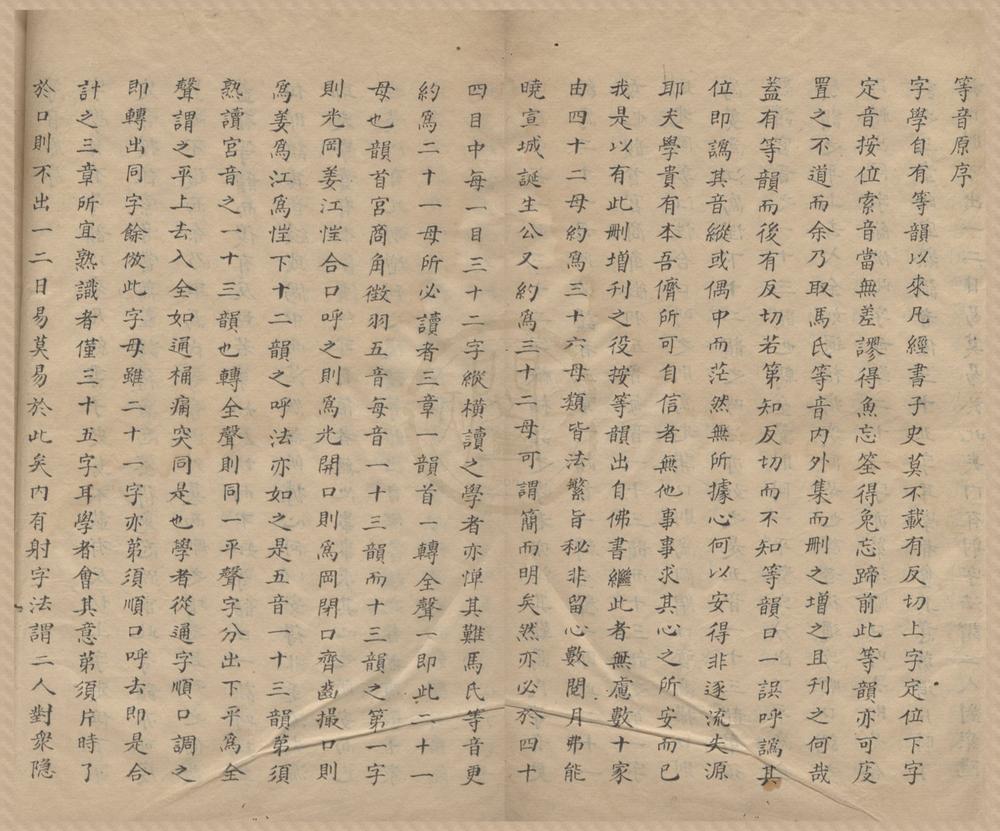 等音原序
字學自有等韻以來凡經書子史莫不載有反切上字定位下字
定音按位索音當無差謬得魚忘筌得兔忘蹄前此等韻亦可庋
置之不道而余乃取馬氏等音內外集而刪之增之且刊之何哉
蓋有等韻而後有反切若第知反切而不知等韻口一誤呼譌其
位即譌其音縱或偶中而茫然無所據心何以安得非逐流失源
耶夫學貴有本吾儕所可自信者無他事事求其心之所安而已
我是以有此刪增刊之役按等韻出自佛書繼此者無慮數十家
由四十二母約為三十六母類皆法繁旨秘非留心數閱月弗能
曉宣城誕生公又約為三十二母可謂簡而明矣然亦必於四十
四目中每一目三十二字縱橫讀之學者亦憚其難馬氏等音更
約為二十一母所必讀者三章一韻首一轉全聲一即此二十一
母也韻首宮商角徵羽五音每音一十三韻而十三韻之第一字
則光岡姜江惶合口呼之則為光開口則為岡閉口齊齒撮口則
為姜為江為惶下十二韻之呼法亦如之是五音一十三韻第須
熟讀宮音之一十三韻也轉全聲則同一平聲字分出下平為全
聲謂之平上去入全如通桶痛突同是也學者從通字順口調之
即轉出同字餘倣此字母雖二十一字亦第須順口呼去即是合
計之三章所宜熟識者僅三十五字耳學者會其意第須片時了
於口則不出一二日易莫易於此矣內有射字法謂二人對衆隐